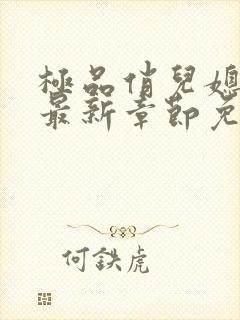 極品俏兒媳
最新章節免
何鉄虎